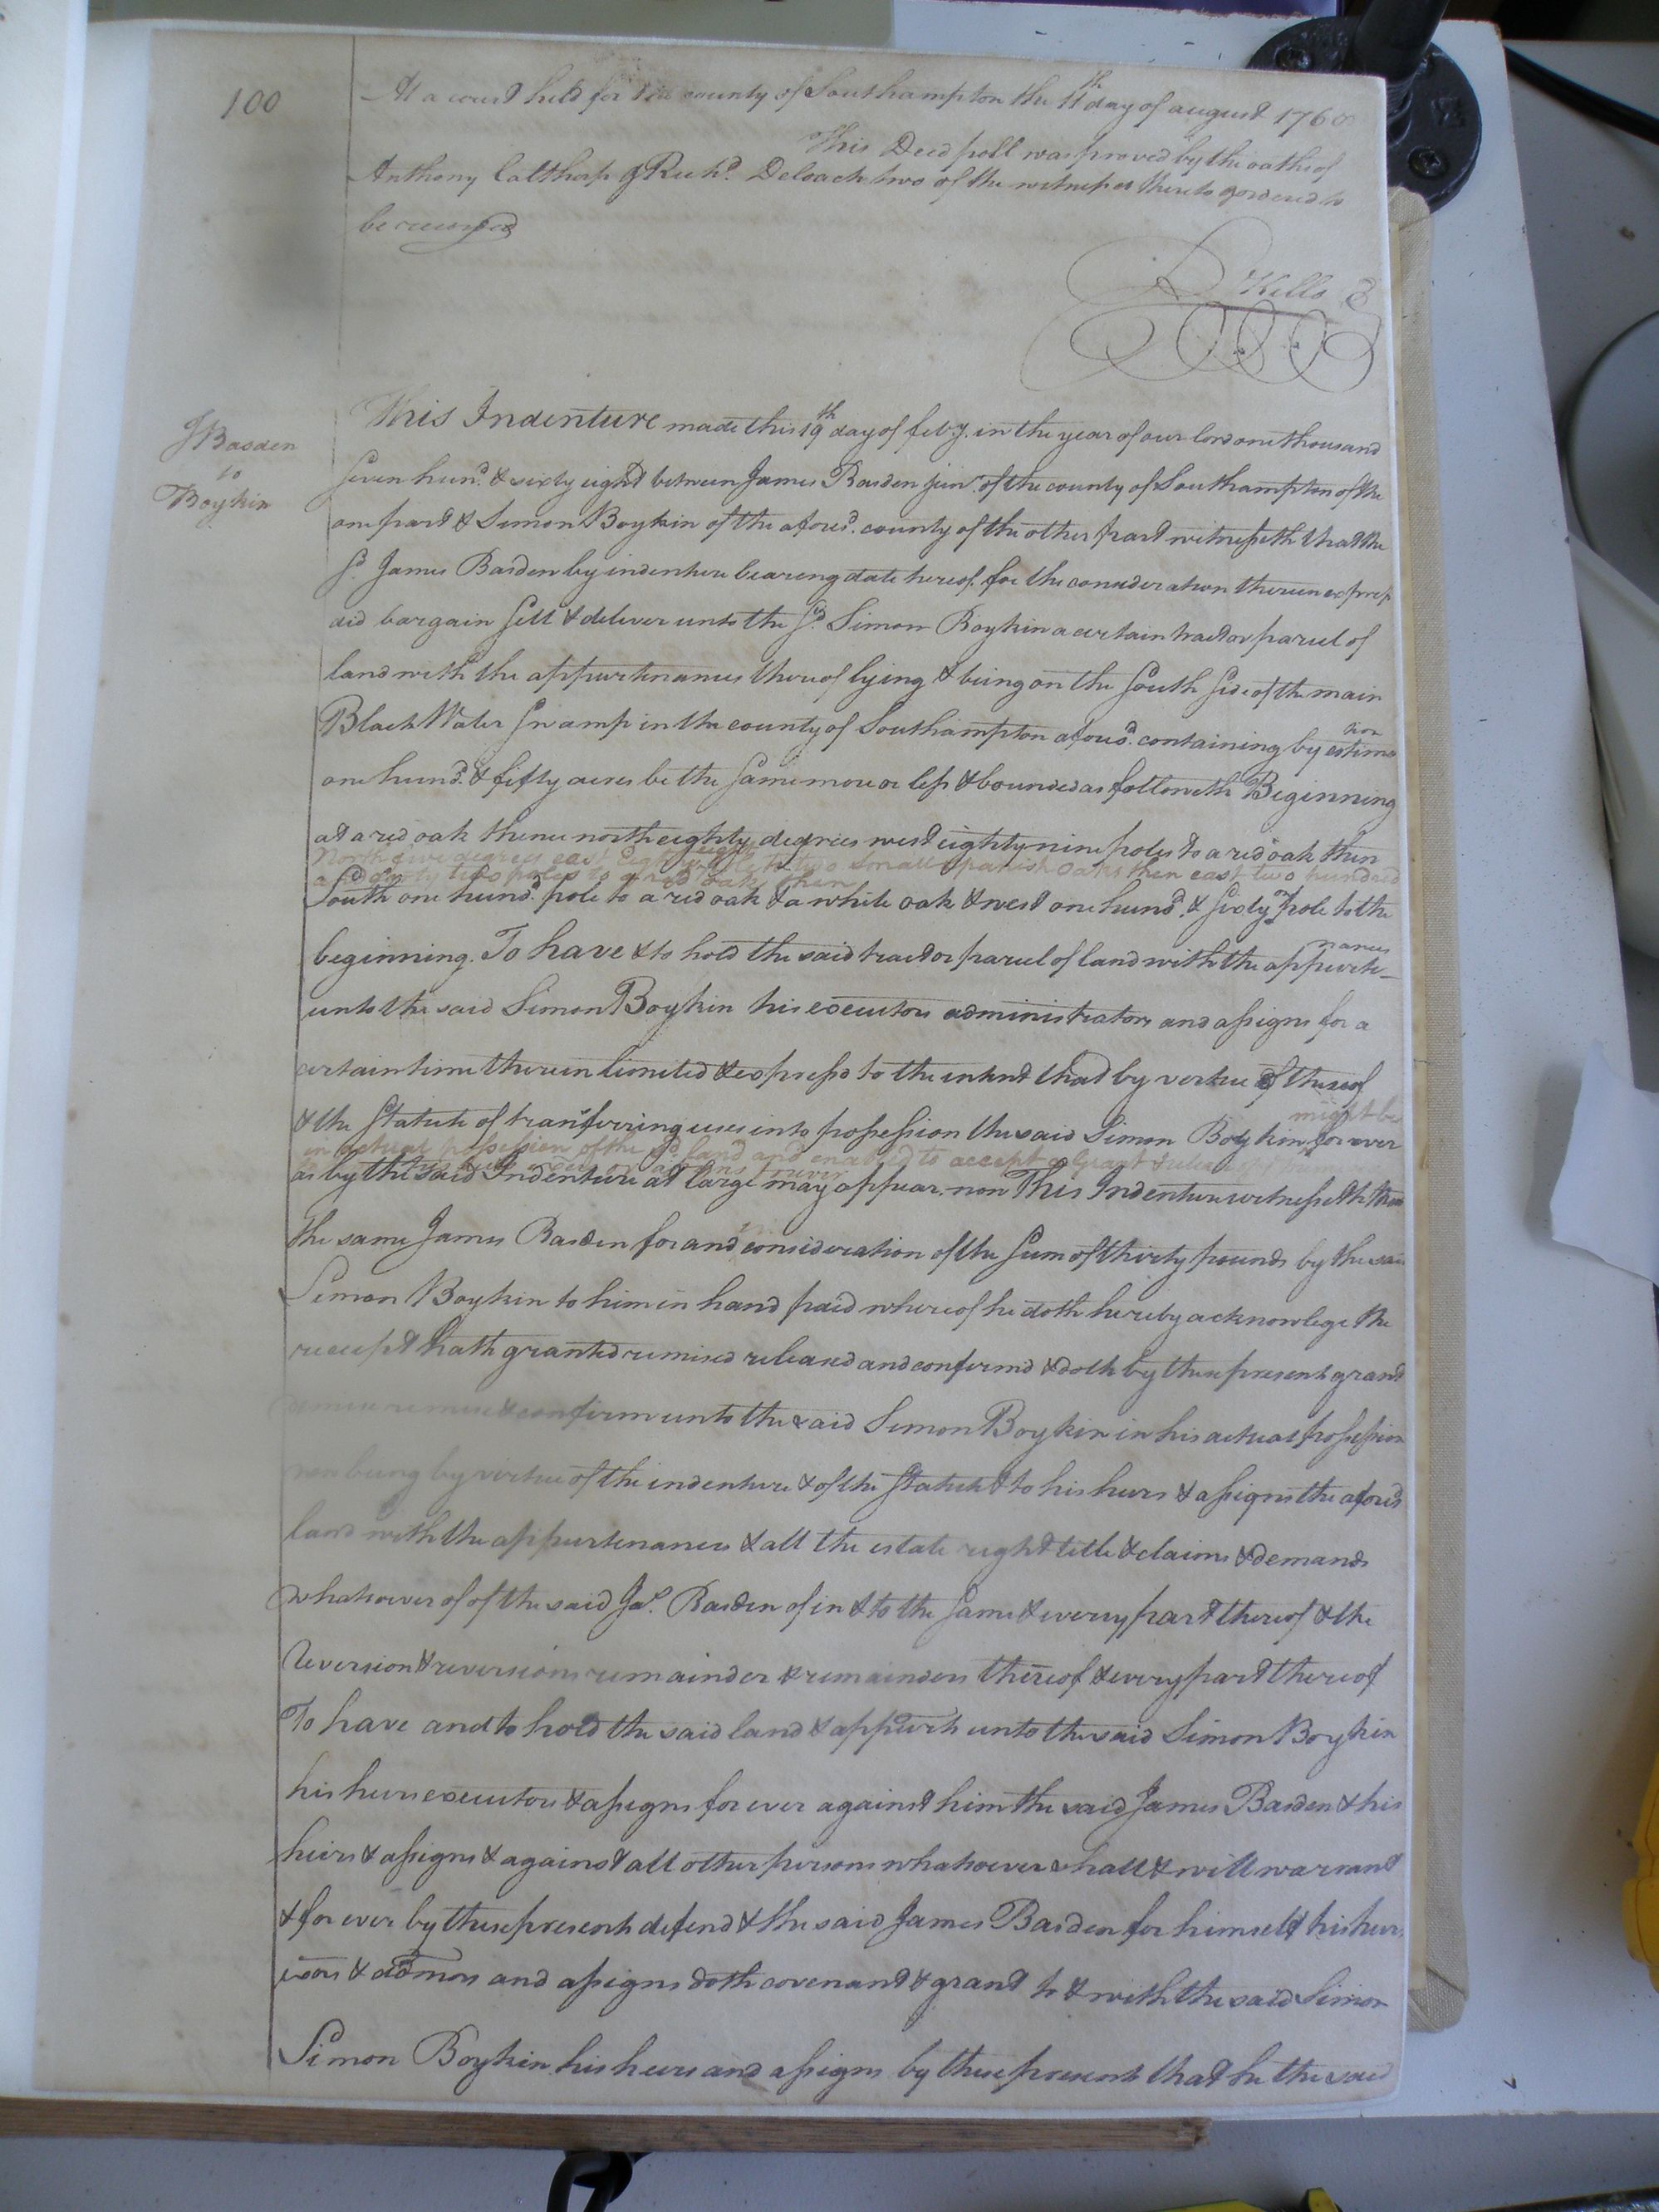 100
At a court held for the county of Southampton the 11th day of august 1768
This Deed poll was proved by the oaths of
Anthony Calthorp & Richd. Deloach two of the witnesses thereto & ordered to
be recorded
R Kello
J Basden
to
Boykin
This Indenture made this 19th day of feby. in the year of our lord one thousand
Seven hund. & sixty eight between James Basden junr. of the county of Southampton of the
one part & Simon Boykin of the aforesd. county of the other part witnesseth that the
sd. James Basden by indenture bearing date hereof for the consideration therein express
did bargain sell & deliver unto the sd. Simon Boykin a certain tract or parcel of
land with the appurtenances thereof lying & being on the South Side of the main
Black Water Swamp in the county of Southampton aforesd. containing by estimation
one hund. & fifty acres be the same more or less & bounded as followeth Beginning
at a red oak thence north eighty degrees west eighty nine poles to a red oak then
North five degrees east Eighty eight poles to two small spanish oaks then east two hundred
and forty two poles to a red oak then
South one hund. pole to a red oak & a white oak & west one hund. & sixty one pole to the
beginning. To have & to hold the said tract or parcel of land with the appurtenances
unto the said Simon Boykin his executors administrators and assigns for a
certain time therein limited & expressd to the intent that by vertue of thereof
& the Statute of transferring uses into possession the said Simon Boykin might be for ever
in actual possession of the sd. land and enabled to accept a Grant & release
as by the said Indenture at large may appear, now This Indenture witnesseth that
the same James Basden for and in consideration of the sum of thirty pounds by the said
Simon Boykin to him in hand paid whereof he doth hereby acknowlege the
receipt hath granted remised released and confirmd & doth by these presents grant
remise & confirm unto the said Simon Boykin in his actual possession
now being by virtue of the indenture & of the Statute & to his heirs & assigns the aforesd
land with the appurtenances & all the estate right & title & claims & demands
whatsoever of of the said Jas. Basden of in & to the same & every part thereof & the
Reversion & reversions remainder & remainders thereof & every part thereof
To have and to hold the said land & appurts unto the said Simon Boykin
his heirs executors & assigns for ever against him the said James Basden & his
heirs & assigns & against all other persons whatsoever shall & will warrant
& for ever by these presents defend & the said James Basden for himself & his heirs
exors & admors and assigns doth covenant & grant to & with the said Simon
Simon Boykin his heirs and assigns by these presents that he the said